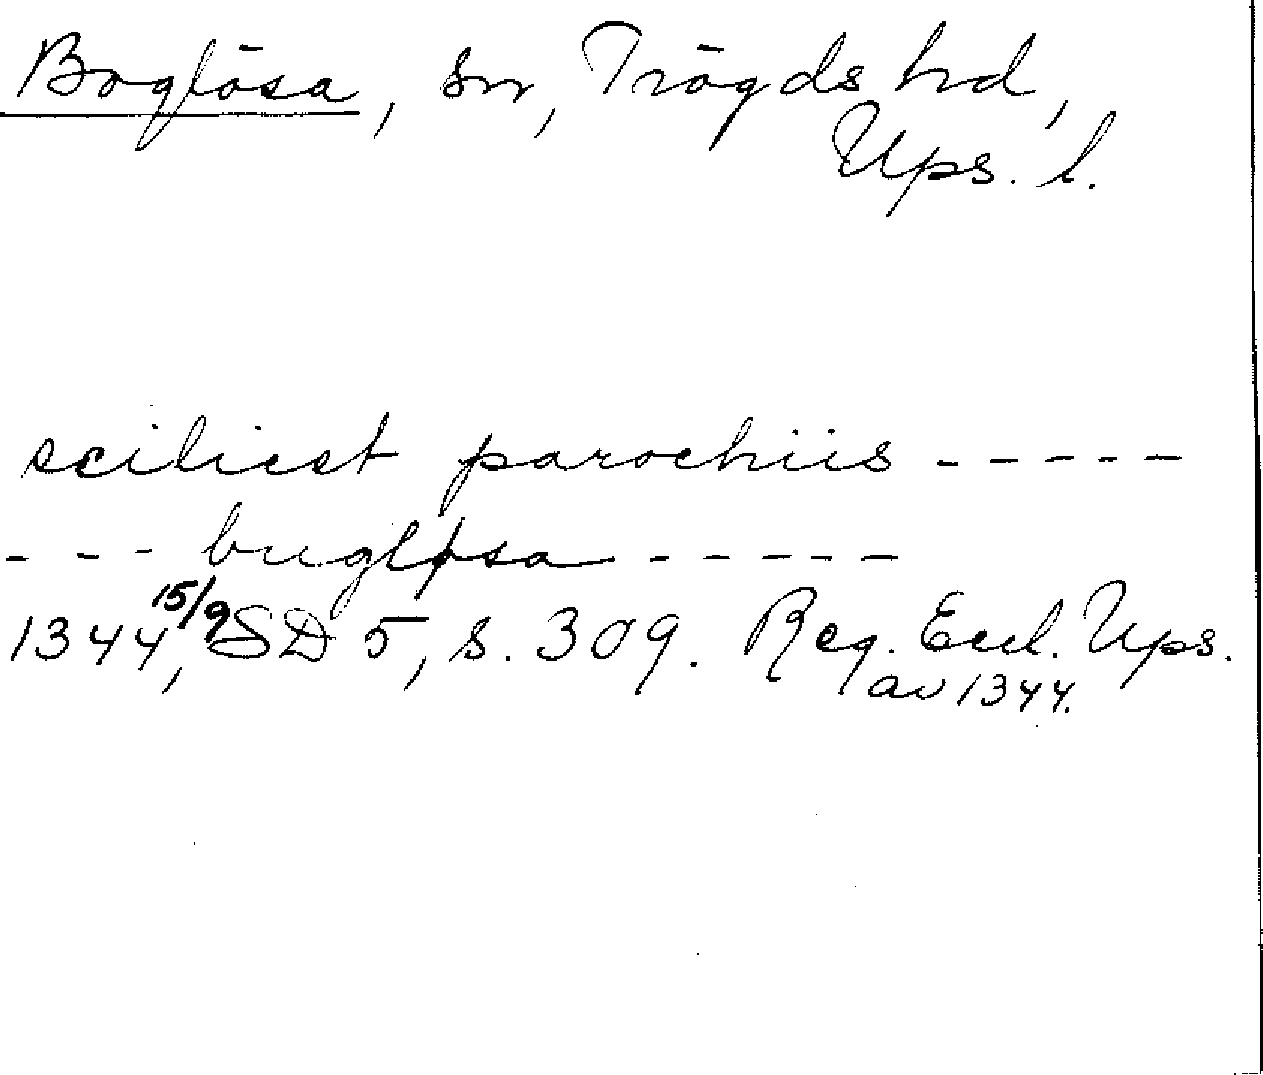 Boglösa, sn, Trögds hd,
Ups. l.
sciliest parochiis - - - - -
- - - bugløsa - - - - -
1344, 15/9 SD 5, s. 309. Reg. Eccl. Ups.
av 1344.